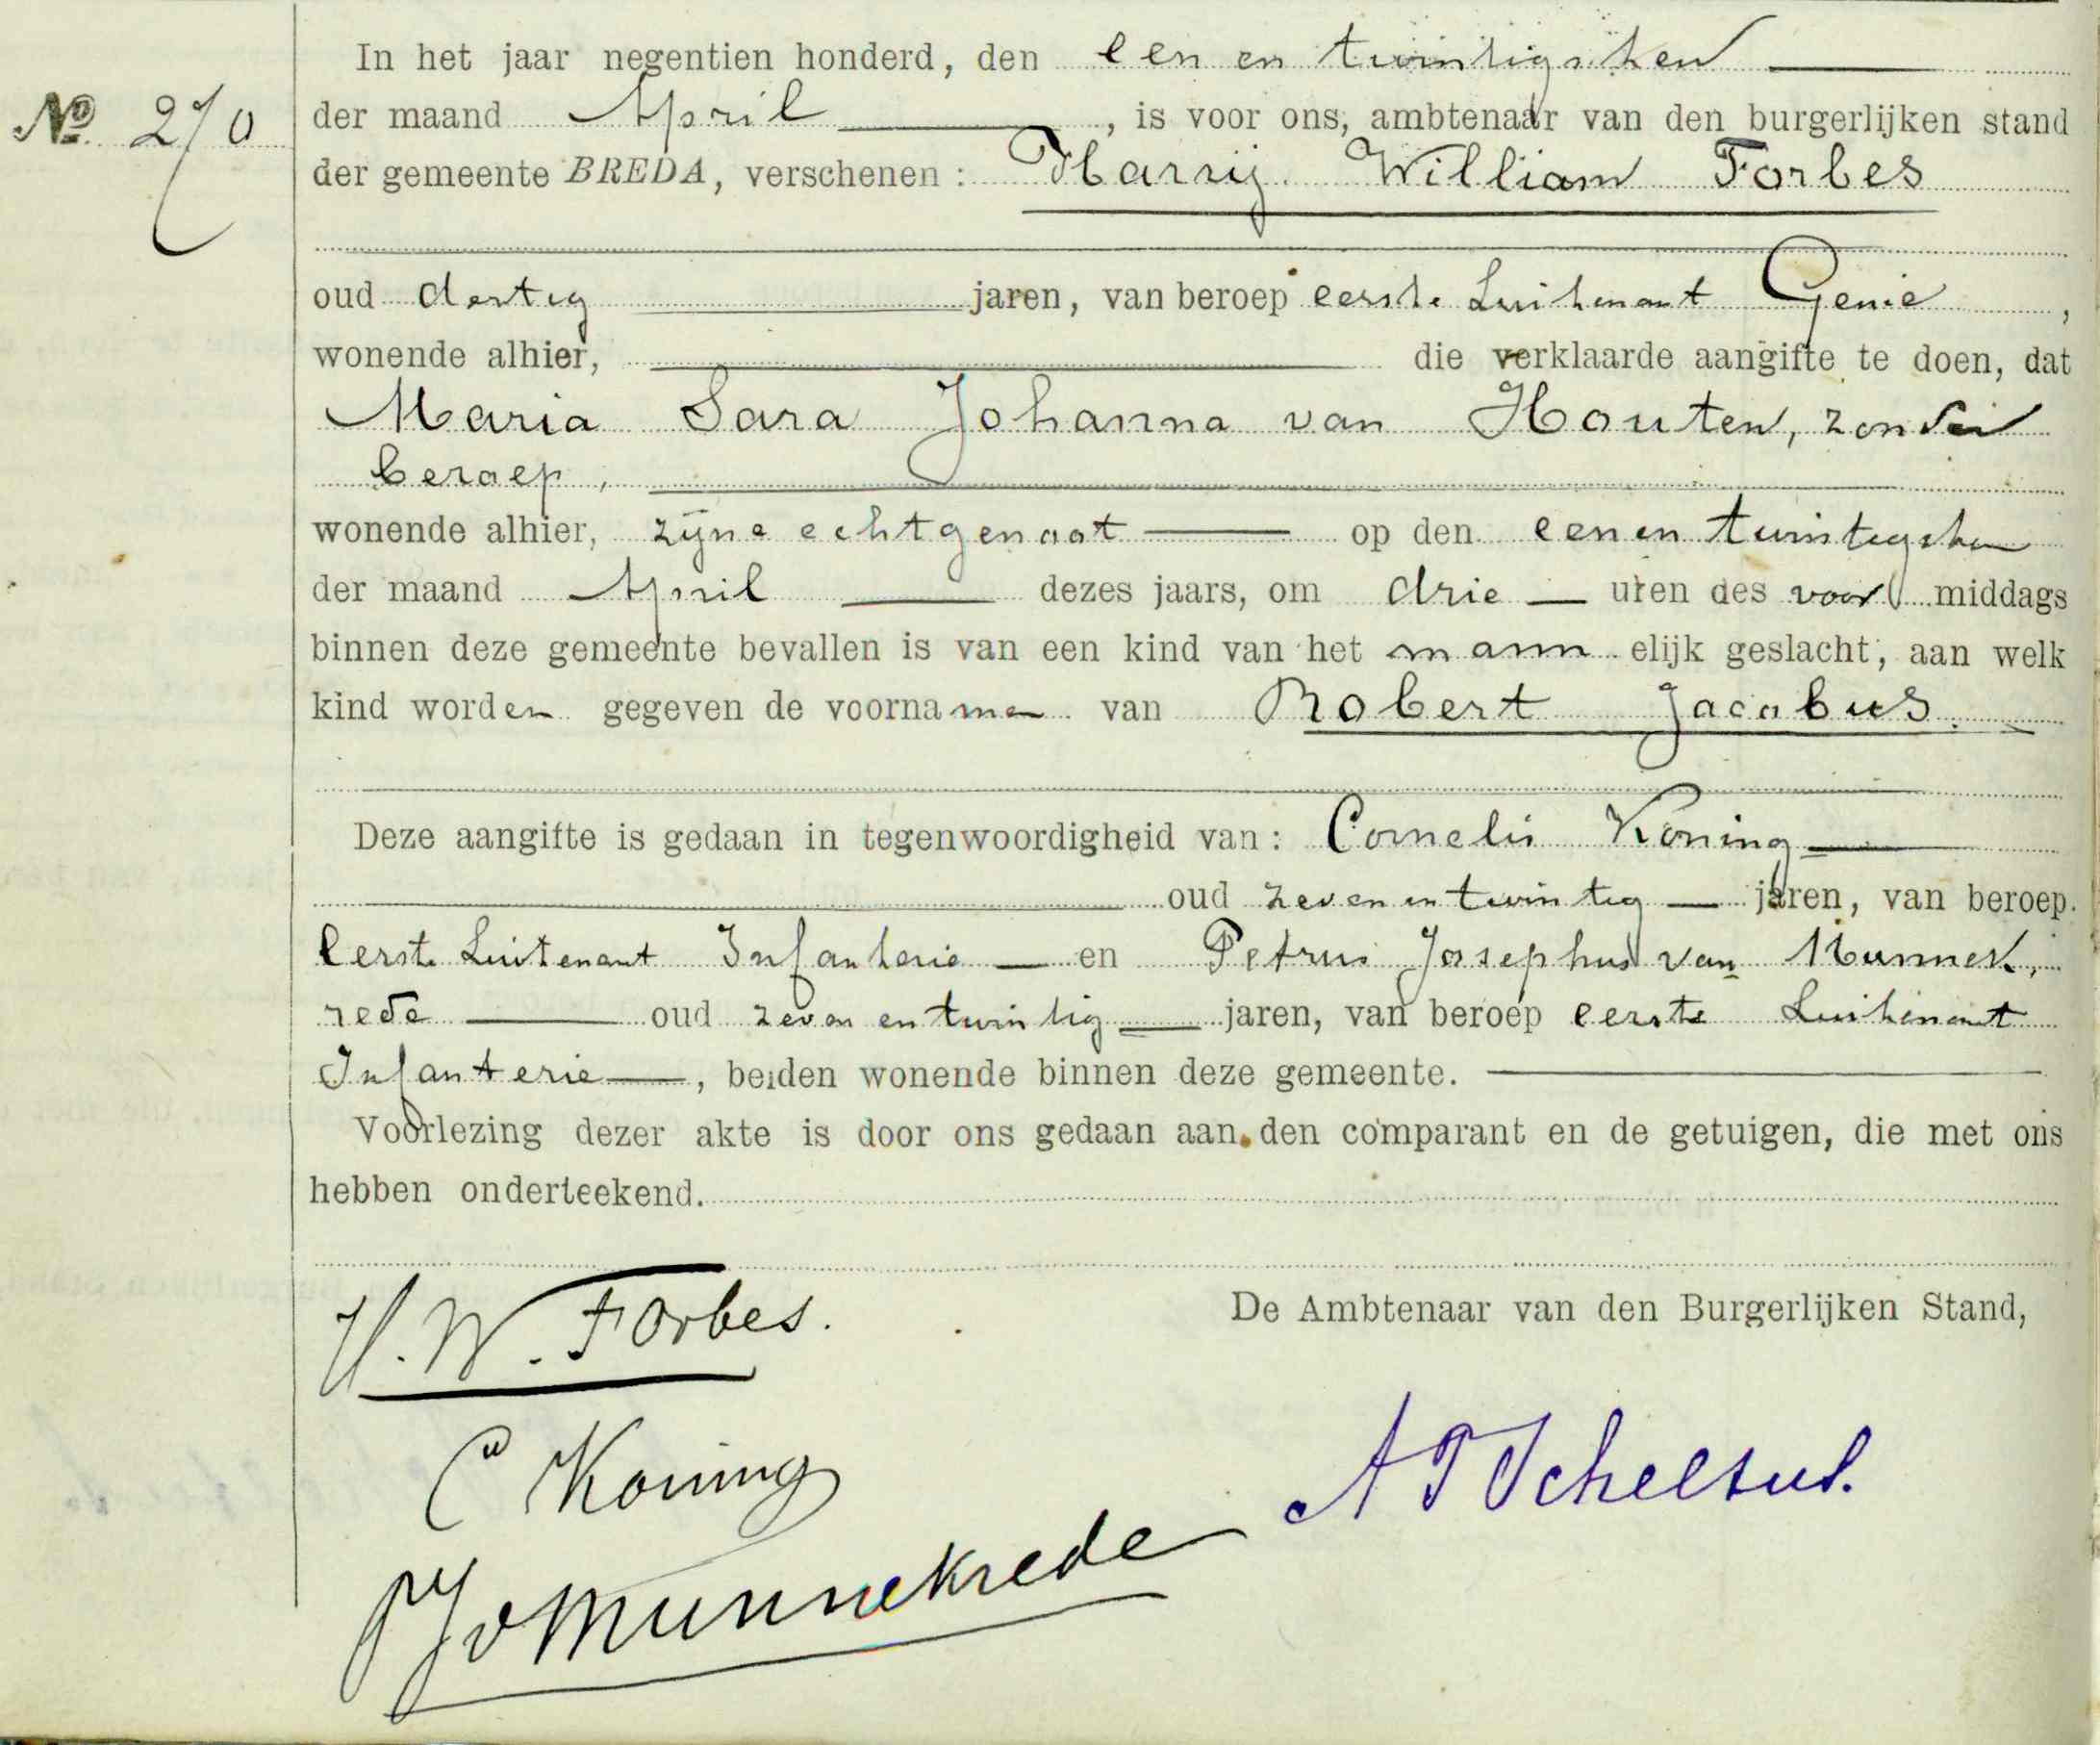 Nº 270
In het jaar negentien honderd, den een en twintigsten
der maand April, is voor ons, ambtenaar van den burgerlijken stand
der gemeente BREDA, verschenen: Harrij William Forbes
oud dertig jaren, van beroep eerste Luitenant Genie,
wonende alhier, die verklaarde aangifte te doen, dat
Maria Sara Johanna van Houten, zonder
beroep,
wonende alhier, zijne echtgenoot op den een en twintigsten
der maand April dezes jaars, om drie uren des voor middags
binnen deze gemeente bevallen is van een kind van het mann elijk geslacht, aan welk
kind worden gegeven de voornamen van Robert Jacobus.
Deze aangifte is gedaan in tegenwoordigheid van: Cornelis Koning
oud zeven en twintig jaren, van beroep
eerste Luitenant Infanterie en Petrus Josephus van Munnek,
rede oud zeven en twintig jaren, van beroep eerste Luitenant
Infanterie, beiden wonende binnen deze gemeente.
Voorlezing dezer akte is door ons gedaan aan den comparant en de getuigen, die met ons
hebben onderteekend.
H. W. Forbes.
De Ambtenaar van den Burgerlijken Stand,
C Koning
PJvMunnekrede